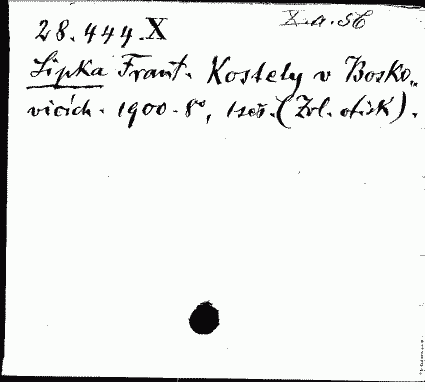 28.444.X
X.a.56
Lipka Frant. Kostely v Bosko-
vicích. 1900 - 8°, 1 seš. (Zvl. otisk).